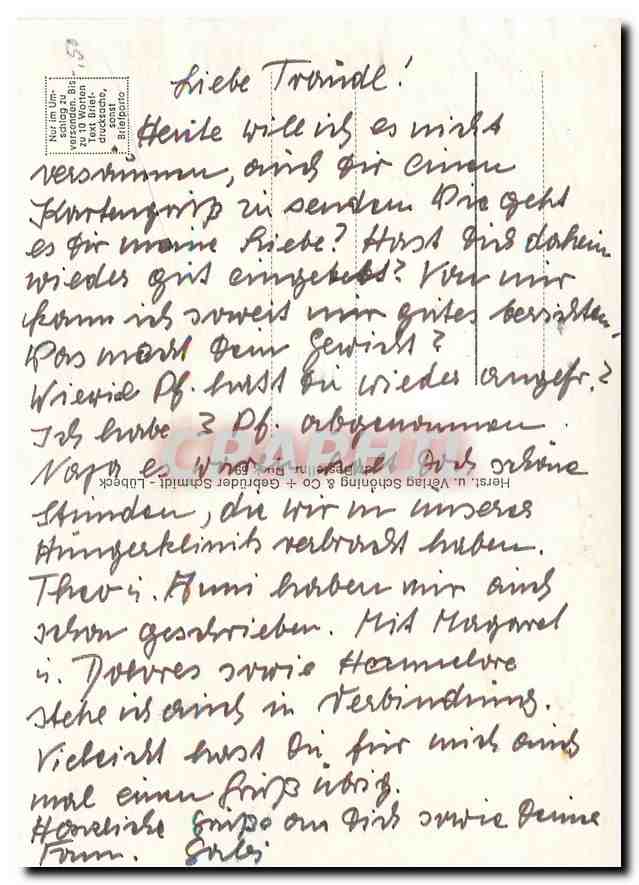 -,50
Nur im Um-
schlag zu
versenden. Bis
zu 10 Worten
Text Brief-
drucksache,
sonst
Briefporto
Liebe Traudl!
Heute will ich es nicht
versäumen, auch Dir einen
Kartengruß zu senden. Wie geht
es Dir meine Liebe? Hast Dich daheim
wieder gut eingelebt? Von mir
kann ich soweit nur gutes berichten.
Was macht Dein Gewicht?
Wieviel Pf. hast Du wieder angefr.?
Ich habe 3 Pf. abgenommen.
Naja es waren halt doch schöne
Herst. u. Verlag Schöning & Co + Gebrüder Schmidt - Lübeck
Stunden, die wir in unserer
Hungerklinik verbracht haben.
Theo u. Anni haben mir auch
schon geschrieben. Mit Magaret
u. Dolores sowie Hannelore
stehe ich auch in Verbindung.
Vieleicht hast Du für mich auch
mal einen Gruß übrig.
Herzliche Grüße an Dich sowie Deine
Fam. Gabi